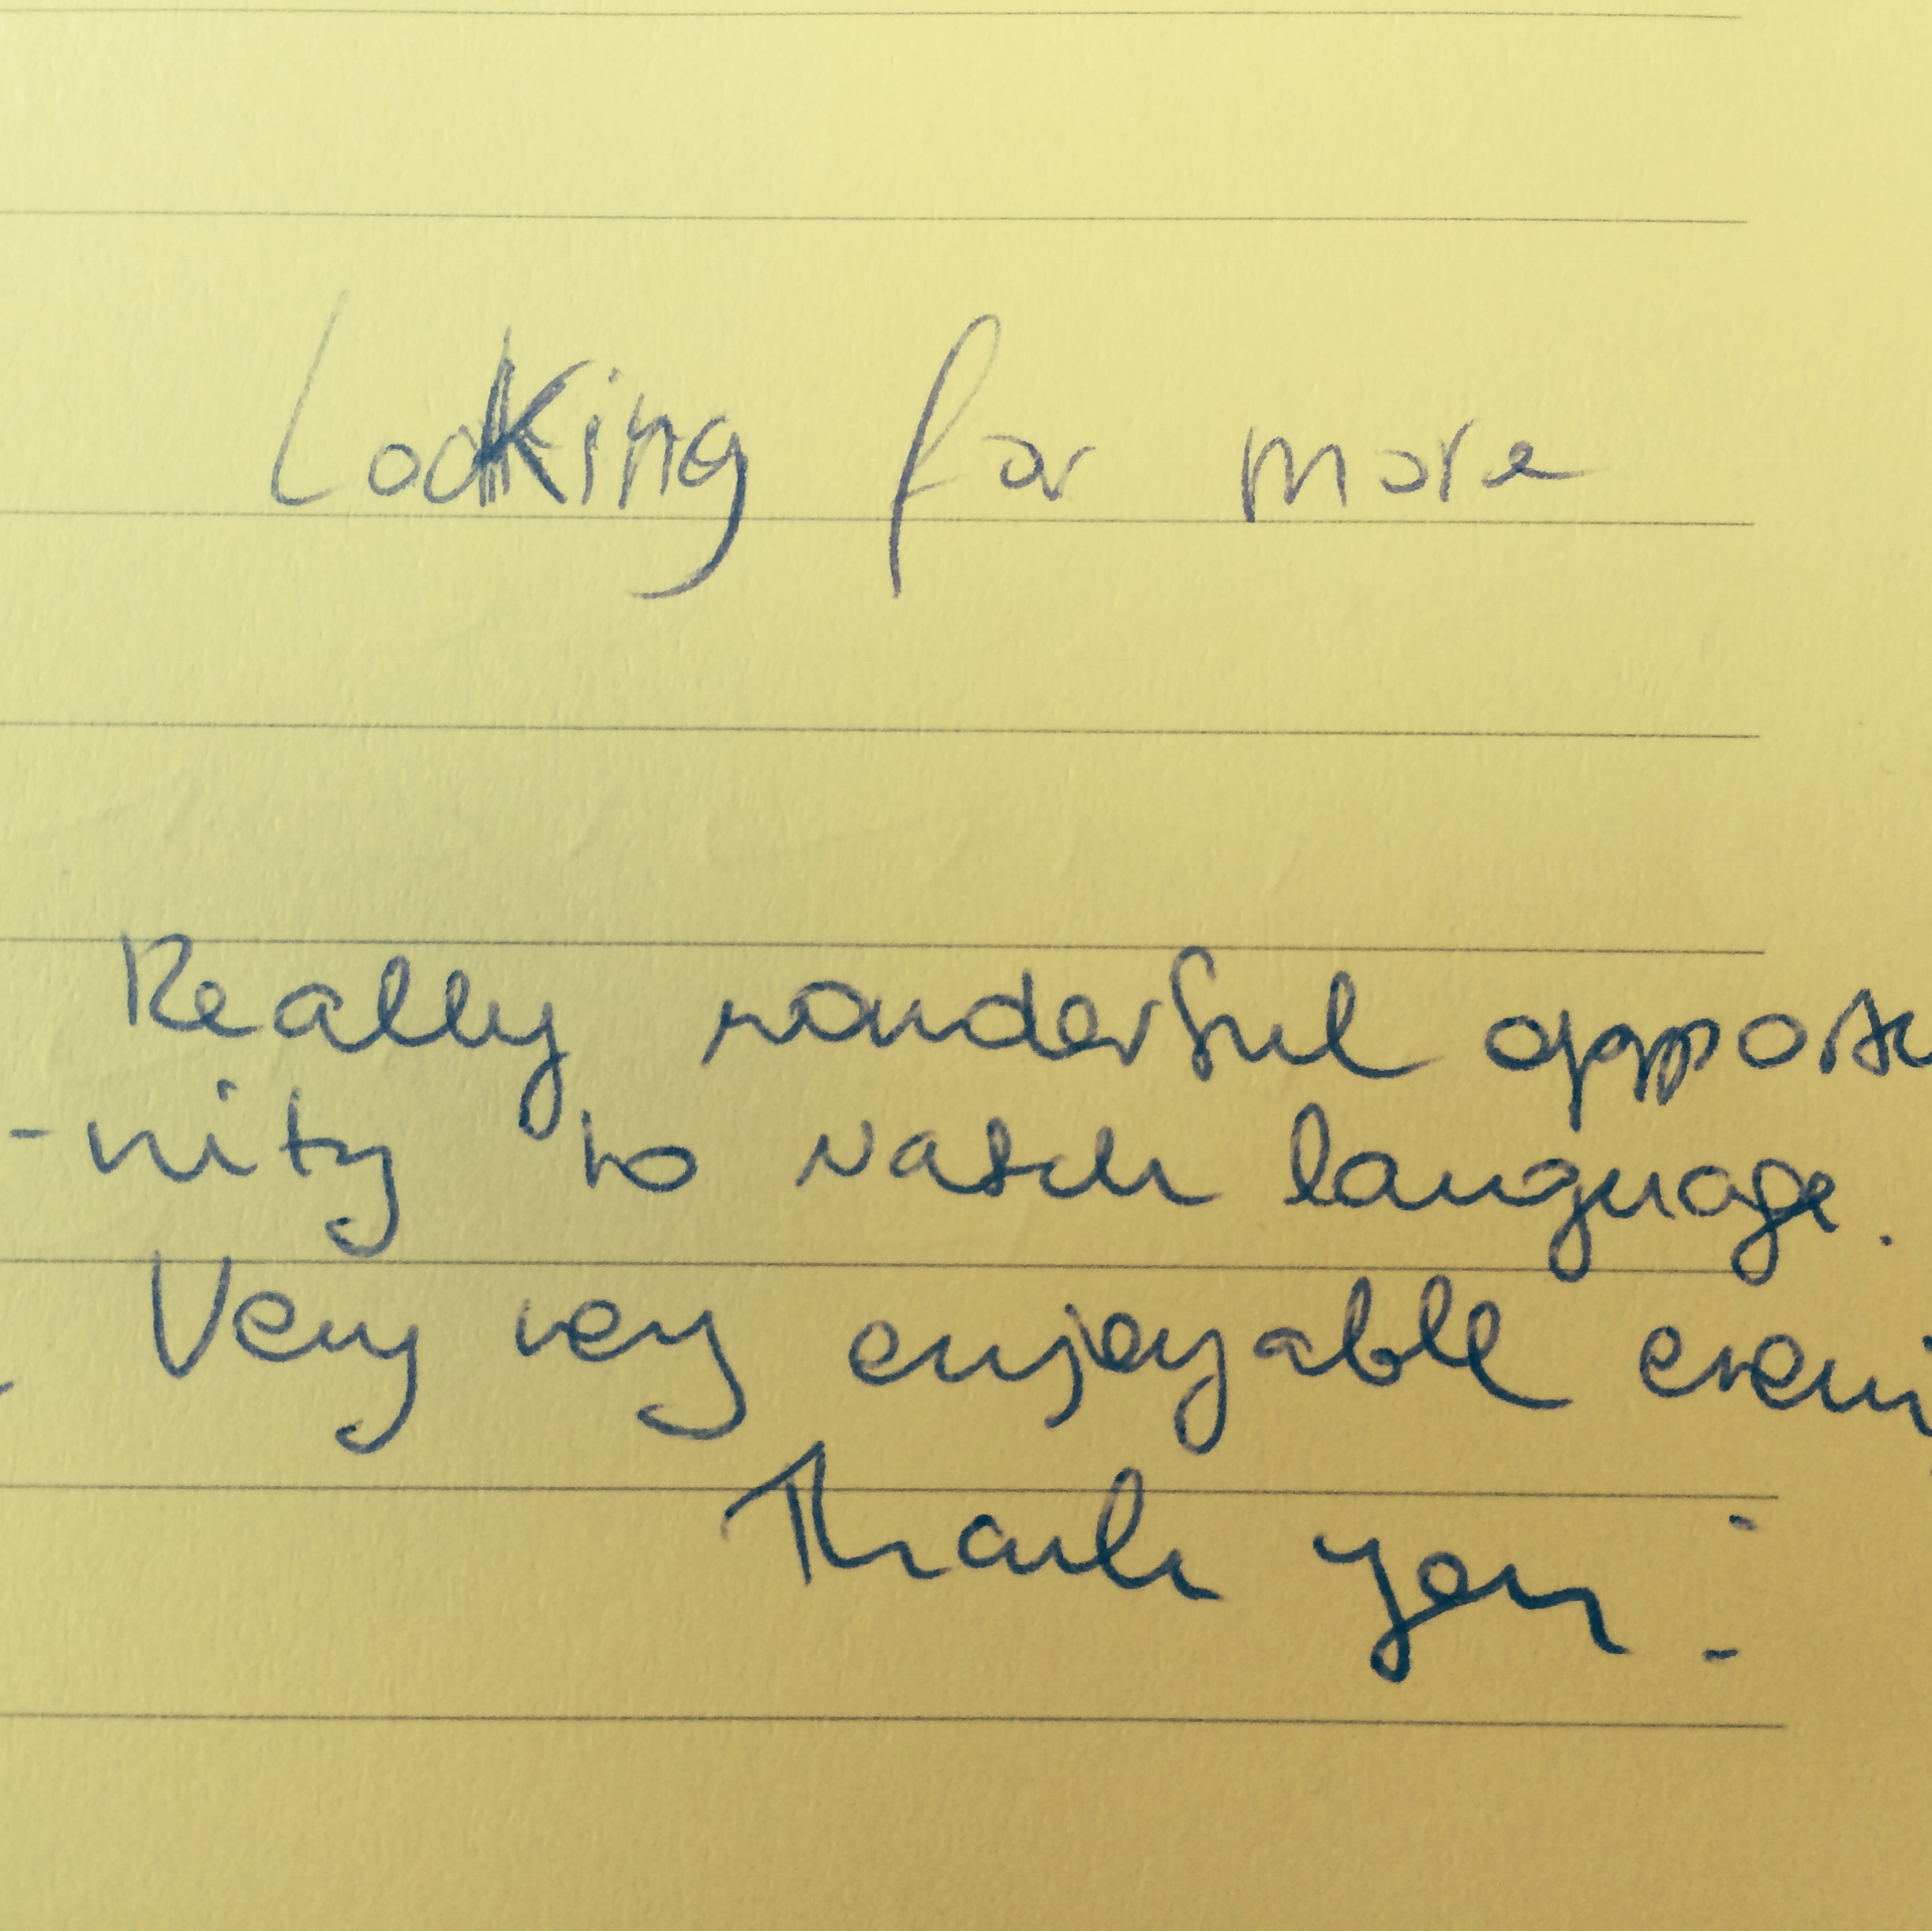 Looking for more
Really wonderful opportu
-nity to watch language.
Very very enjoyable eveni
Thank you!